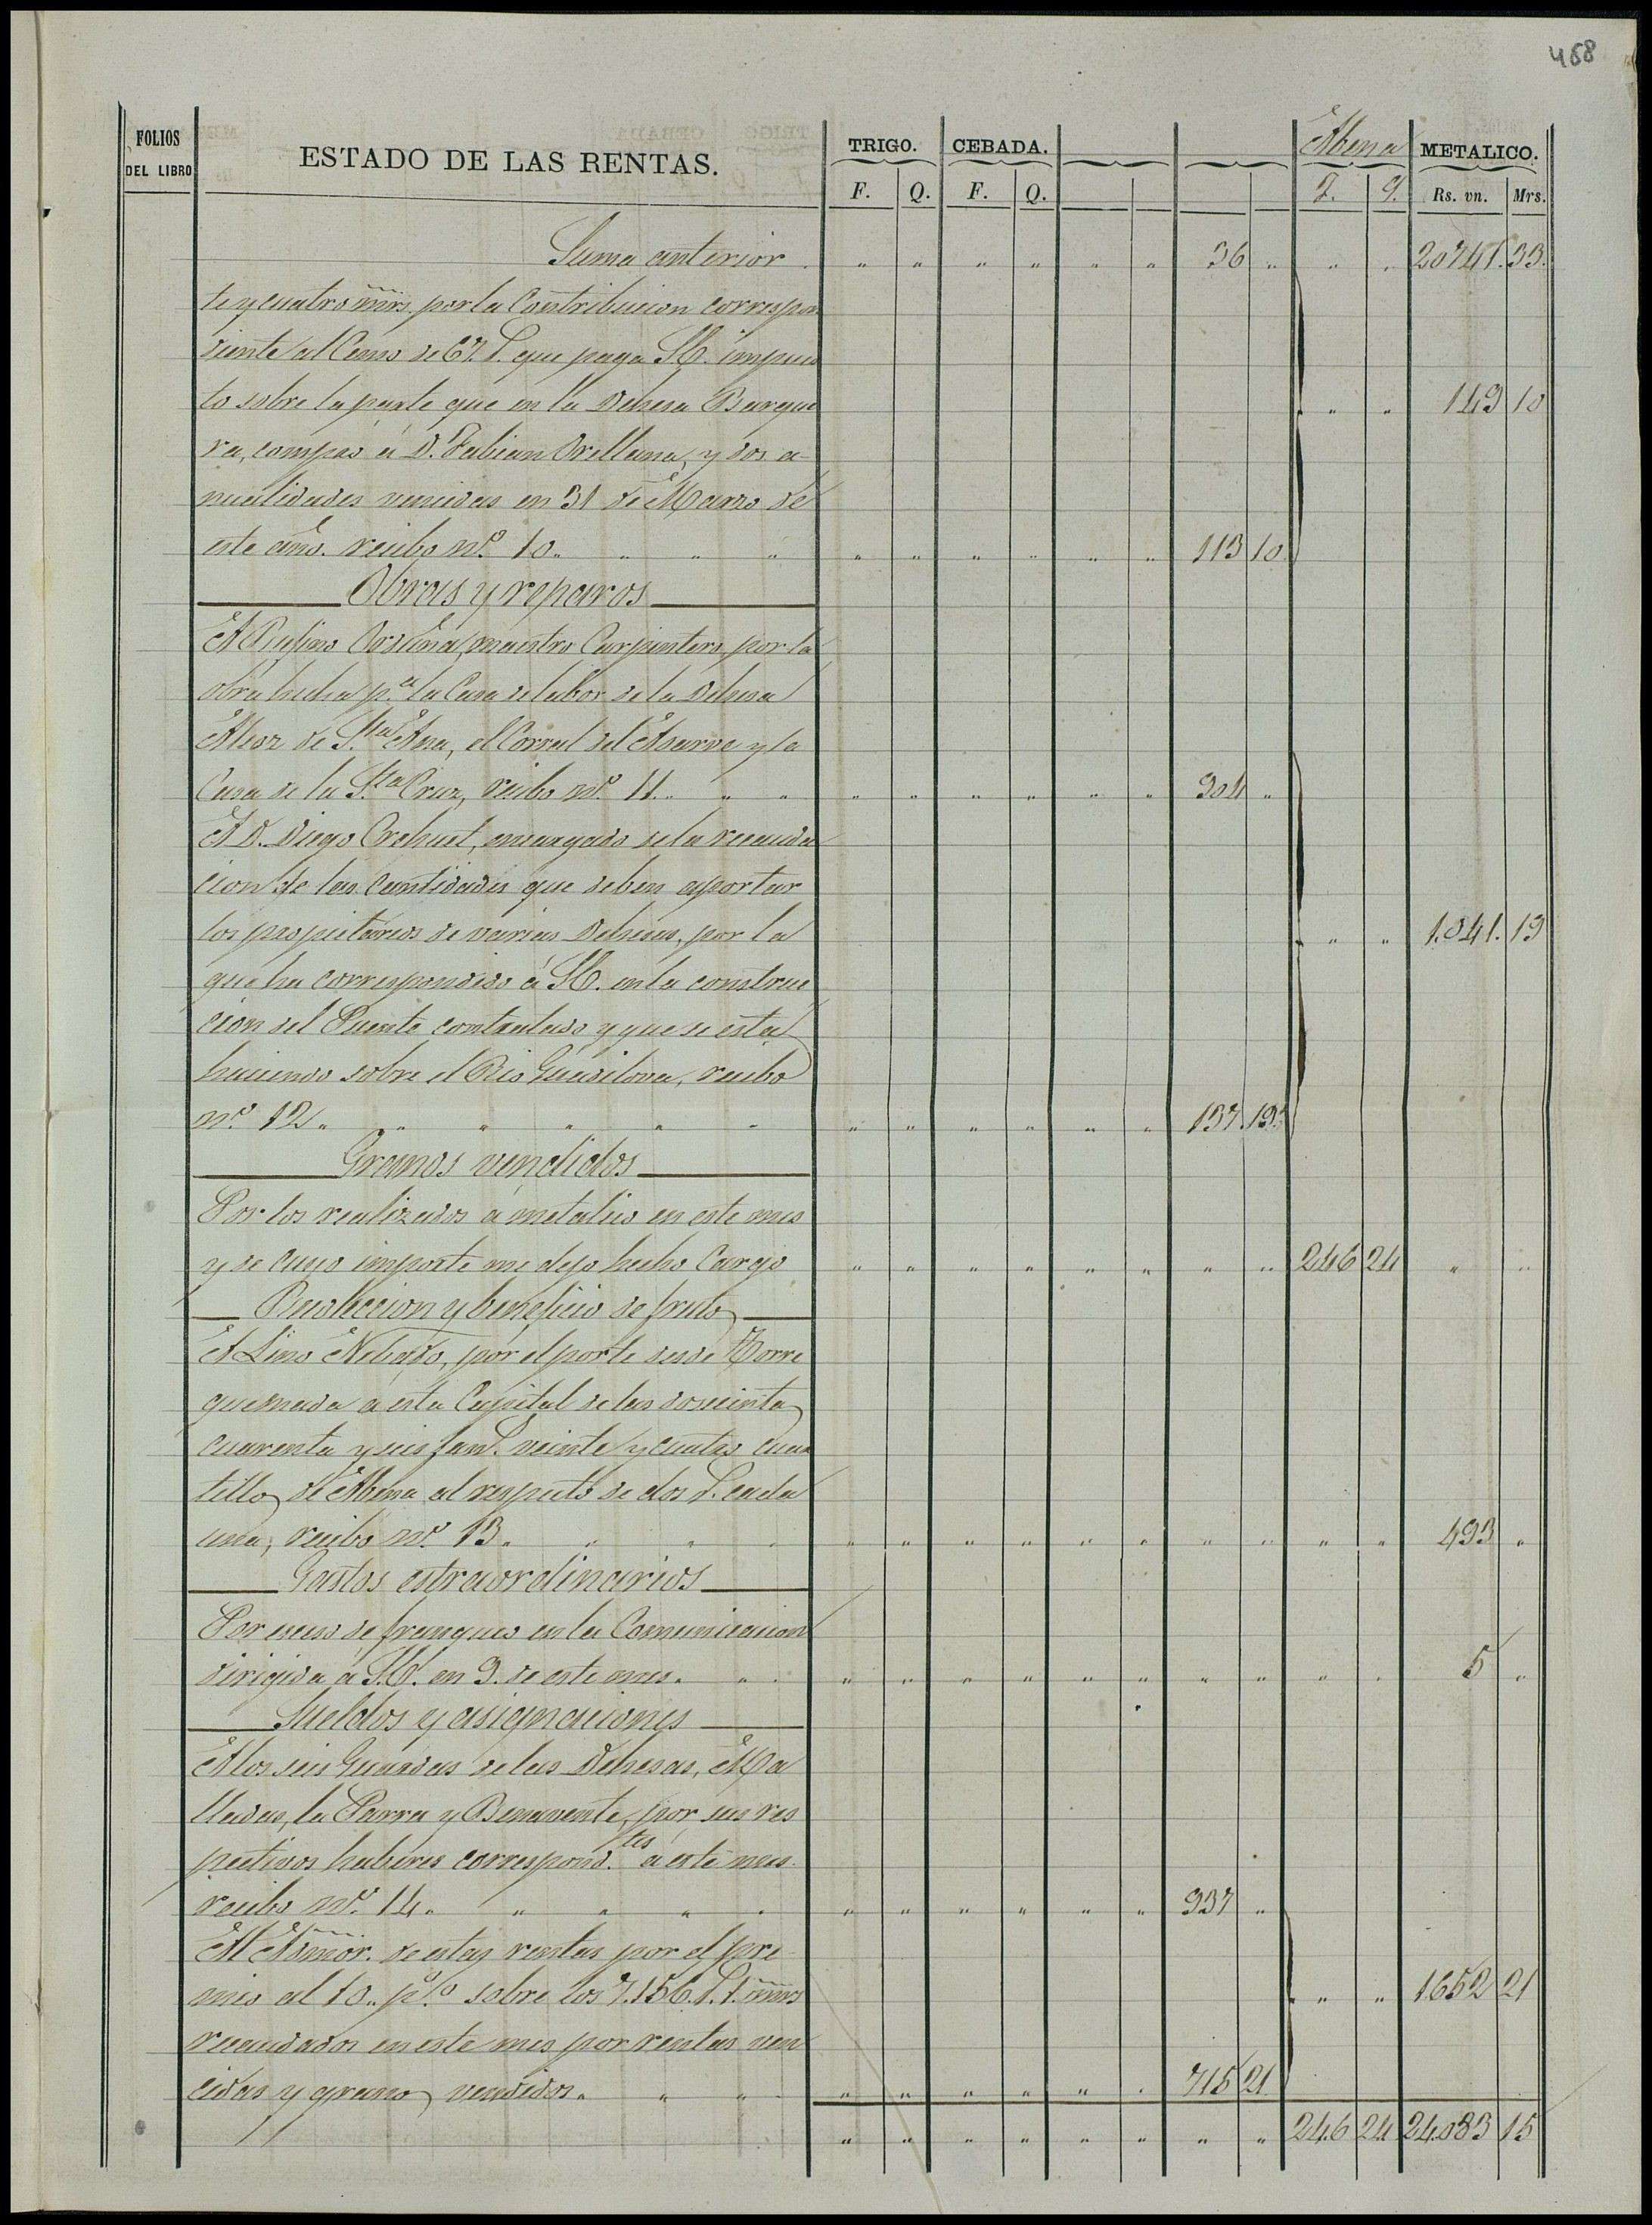 468
FOLIOS DEL LIBRO
ESTADO DE LAS RENTAS.
TRIGO. CEBADA. Abena METALICO.
F. Q. F. Q. F. q. Rs. vn. Mrs.
Suma anterior " " " " " " 36 " " " 20741. 33.
te y cuatro mrs. por la Contribucion correspon
diente al Censo de que paga S.E. impues
to sobre la parte que en la Dehesa Barque " " 149 10
ra, compró á D. Fabian Orellana, y dos a-
nualidades vencidas en 31 de Marzo de
este año. recibo nº 10. " " " " " " " " " 113 10
Obras y reparos
A Rufino maestro Carpintero, por la
obra hecha p.ª la Casa de labor de la Dehesa
Alcor de S.ta Ana, el Corral del Asarve y la
Casa de la S.ta Cruz, recibo nº 11. " " " " " " " " 904 "
A D. Diego Crehuet, encargado de la recauda
cion de las cantidades que deben aportar
los propietarios de varias Dehesas, por la " " 1.041. 19
que ha correspondido á S.E. en la construc
cion del Puente contratado y que se esta
haciendo sobre el Rio Guadilova, recibo
nº 12. " " " " " " " " " " " 137. 19.
Granos vendidos
Por los realizados á metalico en este mes
y de cuyo importe me dejo hecho Cargo " " " " " " " " 246 24 " "
Recoleccion y beneficio de frutos
A Lino Nebado, por el porte desde Torre
quemada á esta Capital de las doscientas
cuarenta y seis fan.s veinte y cuatro cuar
tillos de Abena al respecto de dos r.s cada
una, recibo nº 13. " " " " " " " " " " " " " 493 "
Gastos estraordinarios
Por esceso de franqueo en la Comunicacion
dirigida á S.E. en 9. de este mes. " " " " " " " " " " " " 5 "
Sueldos y asignaciones
A los seis Guardas de las Dehesas, Ma
lladas, la Parra y Benavente, por sus res
pectivos haberes correspond.tes á este mes.
recibo nº 14. " " " " " " " " " " 937 "
Al Admor. de estas rentas por el pre
mio al 10. p.º/o sobre los 7.156. r.s 1. mrs " " 1652 21
recaudados en este mes por rentas ven
cidas y granos vendidos. " " " " " " " " 715 21.
" " " " " " " " 246 24 24.083 15